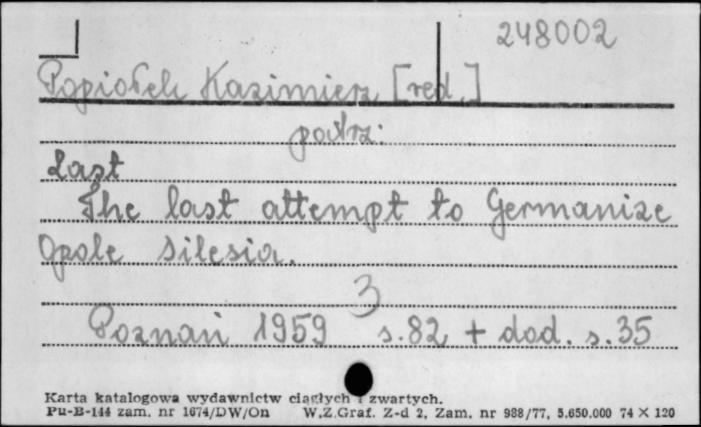 248002
Popiołek Kazimierz [red.]
patrz:
Last
The last attempt to Germanize
Opole Silesia.
3
Poznań 1959 s.82 + dod. s.35
Karta katalogowa wydawnictw ciągłych i zwartych.
Pu-B-144 zam. nr 1674/DW/On W.Z.Graf. Z-d 2, Zam. nr 988/77, 5.650.000 74 X 120